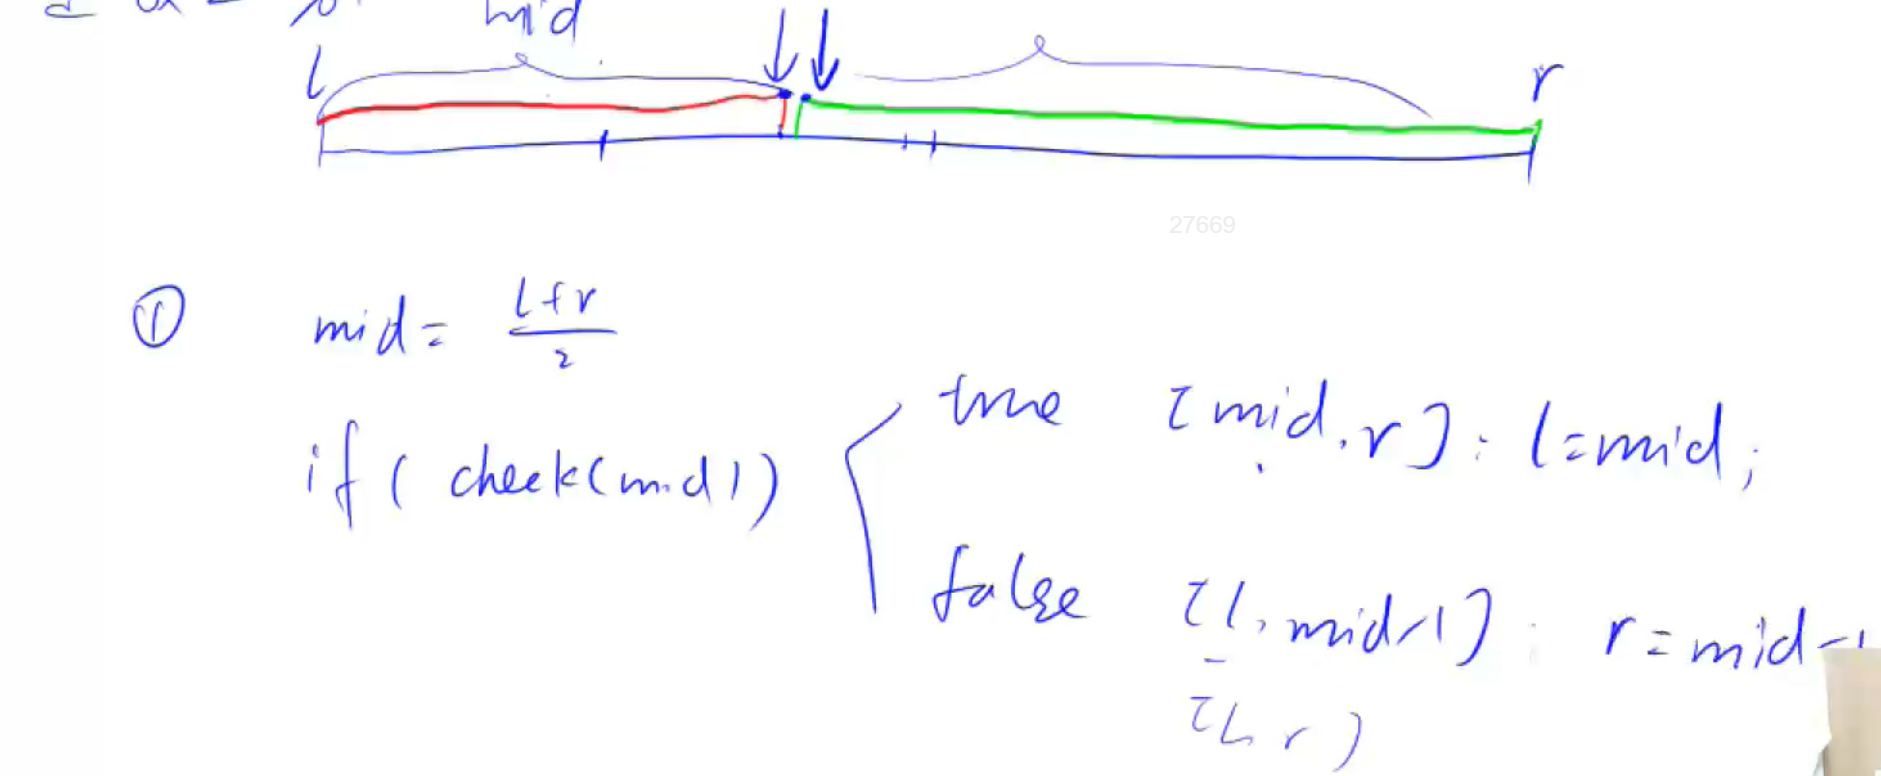 mid
l r
27669
① mid = (l+r)/2
if ( check(mid) ) true [mid, r] : l=mid;
false [l, mid-1] : r = mid-1
[l, r)